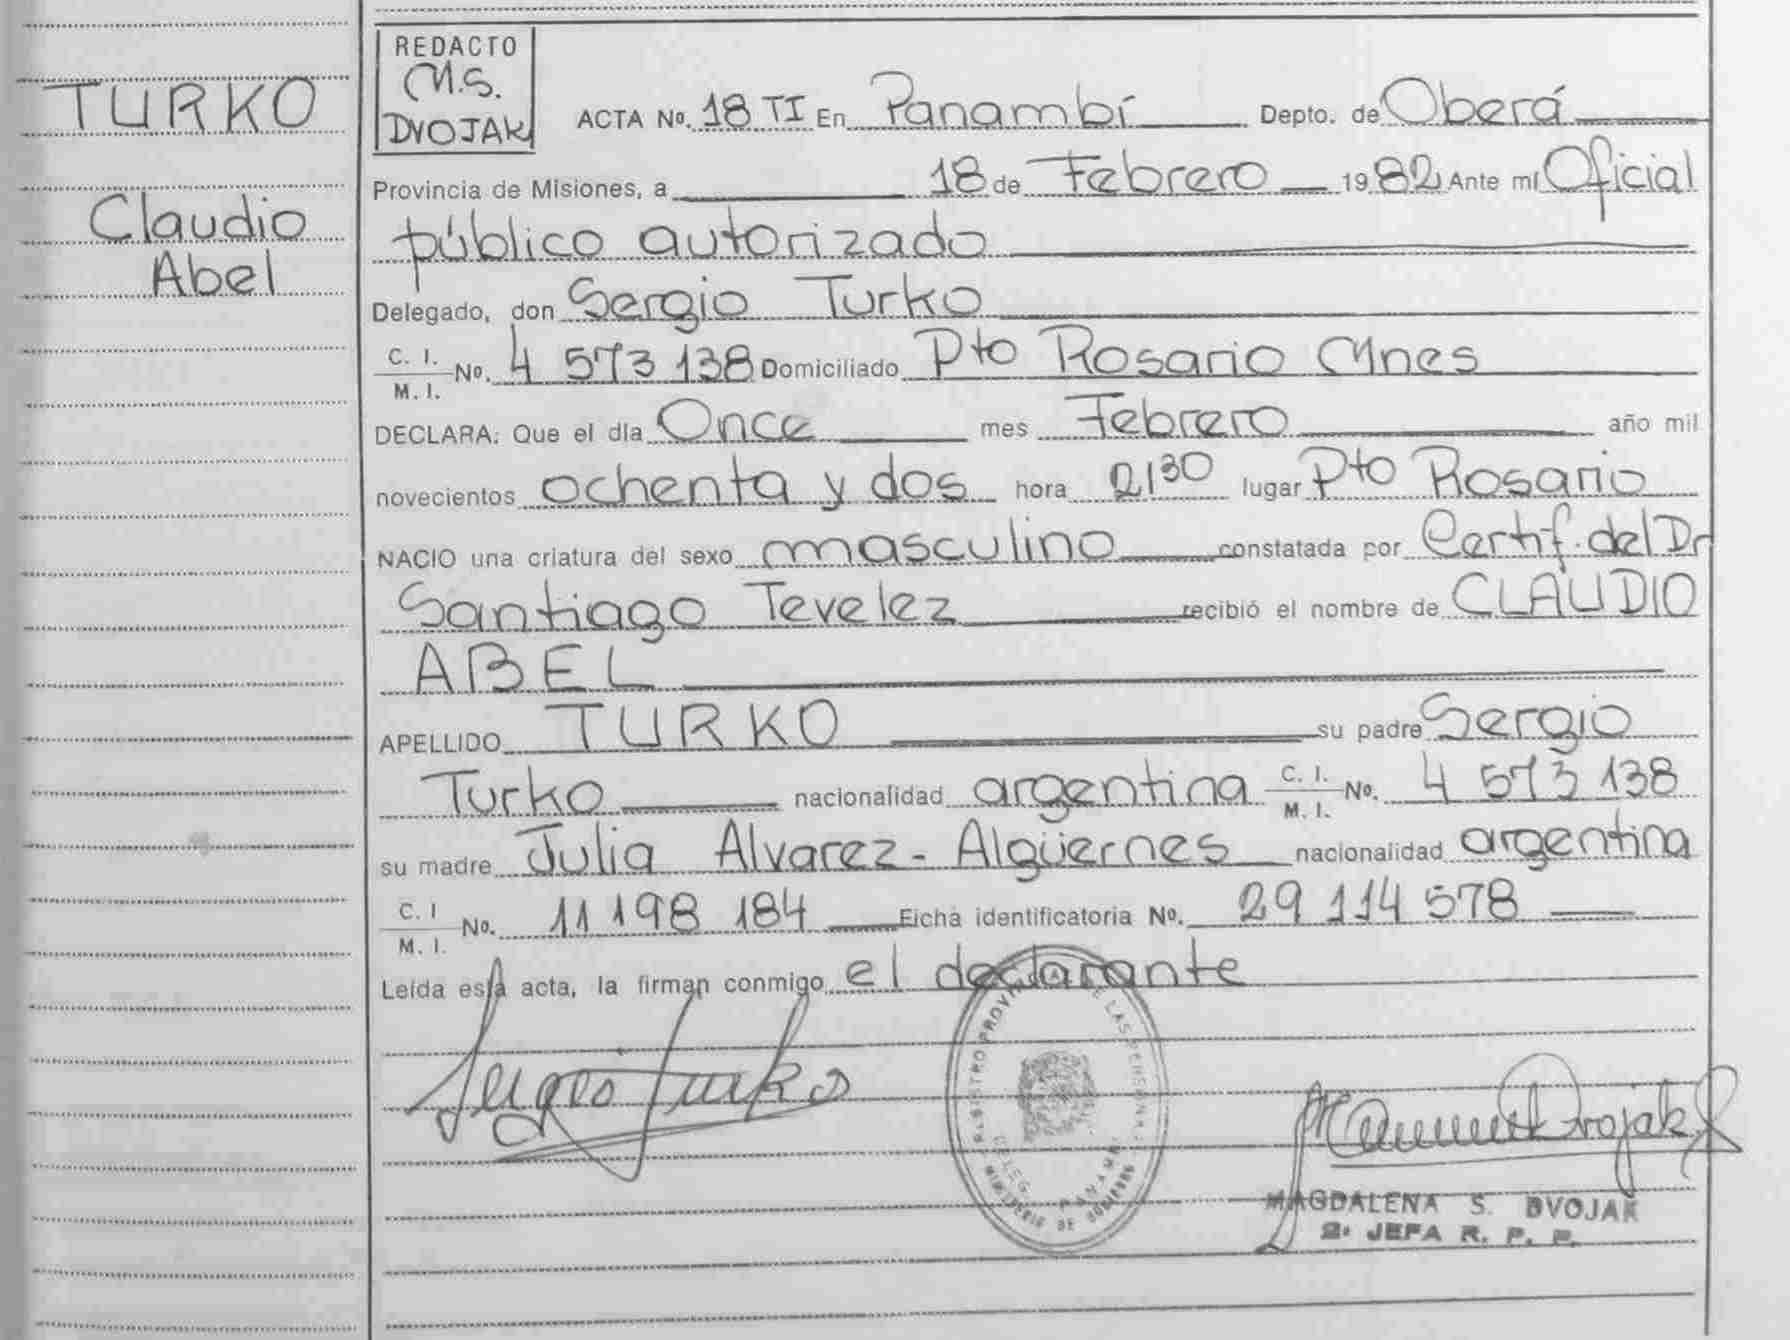 TURKO
Claudio
Abel
REDACTO
M.S.
DVOJAK
ACTA Nº. 18 TI En Panambí Depto. de Oberá
Provincia de Misiones, a 18 de Febrero 1982 Ante mi Oficial
público autorizado
Delegado, don Sergio Turko
C. I. M. I. Nº. 4 573 138 Domiciliado Pto Rosario Mnes
DECLARA: Que el día Once mes Febrero año mil
novecientos ochenta y dos hora 2130 lugar Pto Rosario
NACIO una criatura del sexo masculino constatada por Certif. del Dr
Santiago Tevelez recibió el nombre de CLAUDIO
ABEL
APELLIDO TURKO su padre Sergio
Turko nacionalidad argentina C. I. M. I. Nº. 4 573 138
su madre Julia Alvarez - Algüernes nacionalidad argentina
C. I M. I. Nº. 11 198 184 Ficha identificatoria Nº. 29 114 578
Leída esta acta, la firman conmigo el declarante
Sergio Turko
REGISTRO PROVINCIAL DE LAS PERSONAS
DELEG. PANAMBI
MINISTERIO DE GOBIERNO
Dvojak
MAGDALENA S. DVOJAK
2ª JEFA R. P. P.